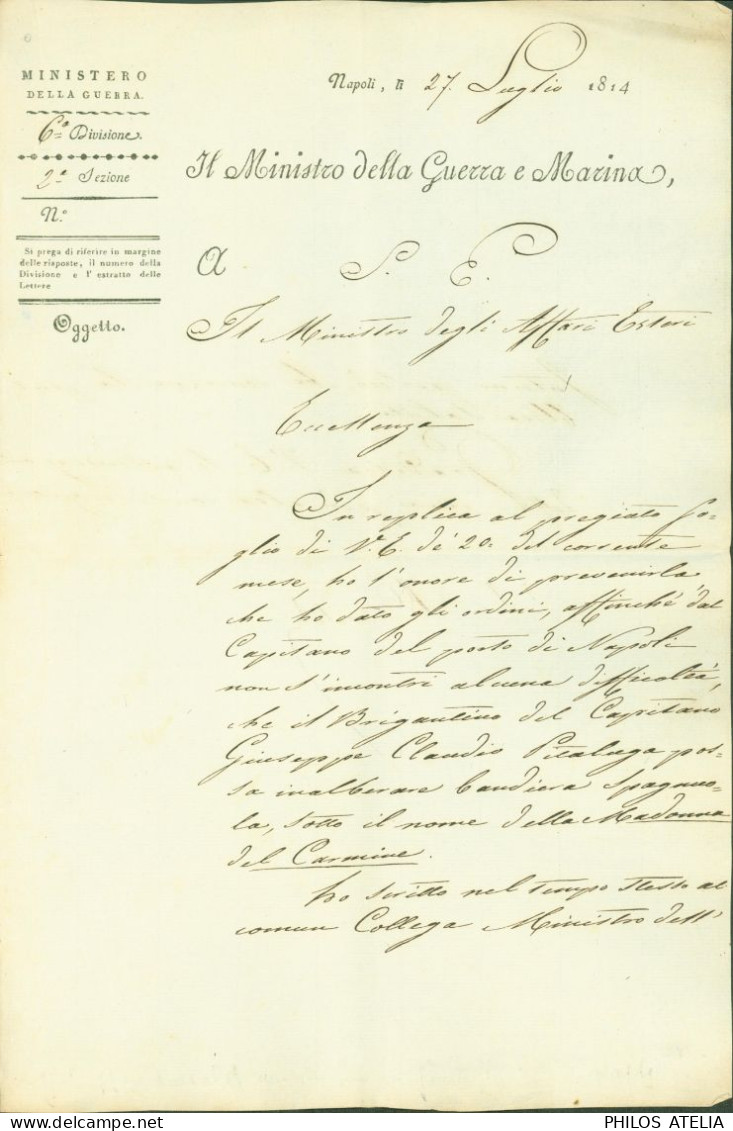 MINISTERO
DELLA GUERRA.
6ª Divisione.
2ª Sezione
N.º
Si prega di riferire in margine
delle risposte, il numero della
Divisione e l' estratto delle
Lettere
Oggetto.
Napoli, li 27. Luglio 1814
Il Ministro della Guerra e Marina,
A S. E.
Il Ministro degli Affari Esteri
Eccellenza
In replica al pregiato fo-
glio di V. E. de' 20. del corrente
mese, ho l'onore di prevenirla,
che ho dato gli ordini, affinché dal
Capitano del porto di Napoli
non s'incontri alcuna difficoltà,
che il Brigantino del Capitano
Giuseppe Claudio Pitaluga pos-
sa inalberare bandiera Spagnuo-
la, sotto il nome della Madonna
del Carmine.
ho scritto nel tempo stesso al
comun Collega Ministro dell'
PHILOS ATELIA